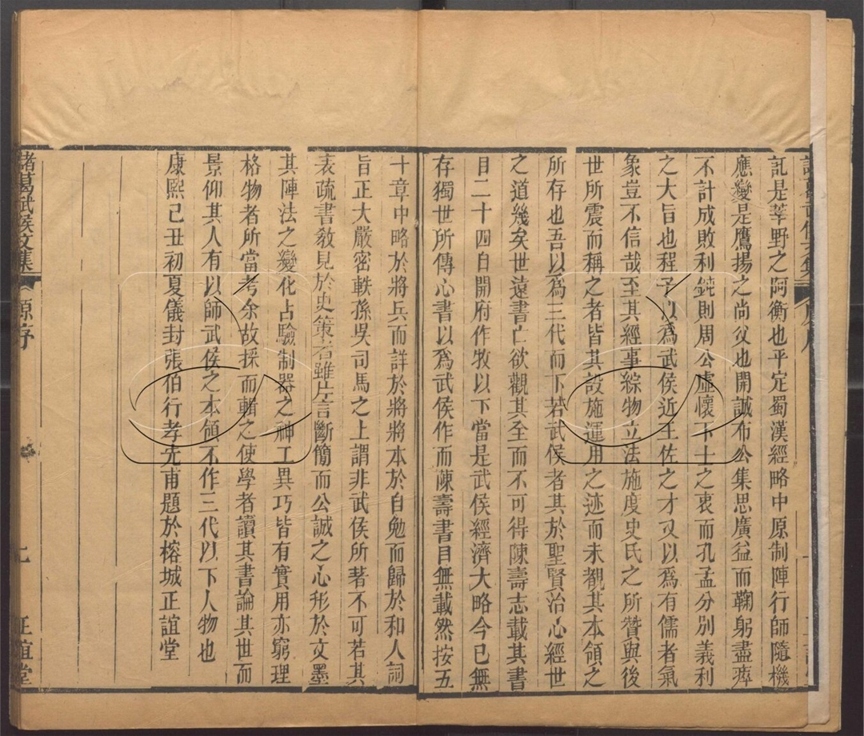 諸葛武侯文集
託是莘野之阿衡也平定蜀漢經略中原制陣行師隨機
應變是鷹揚之尚父也開誠布公集思廣益而鞠躬盡瘁
不計成敗利鈍則周公虛懷下士之衷而孔孟分別義利
之大旨也程子以為武侯近王佐之才又以為有儒者氣
象豈不信哉至其經事綜物立法施度史氏之所贊與後
世所震而稱之者皆其設施運用之迹而未覩其本領之
所存也吾以為三代而下若武侯者其於聖賢治心經世
之道幾矣世遠書亡欲觀其至而不可得陳壽志載其書
目二十四自開府作牧以下當是武侯經濟大略今已無
存獨世所傳心書以為武侯作而陳壽書目無載然按五
十章中略於將兵而詳於將將本於自勉而歸於和人詞
旨正大嚴密軼孫吳司馬之上謂非武侯所著不可若其
表疏書教見於史策者雖片言斷簡而公誠之心形於文墨
其陣法之變化占驗制器之神工異巧皆有實用亦窮理
格物者所當考余故採而輯之使學者讀其書論其世而
景仰其人有以師武侯之本領不作三代以下人物也
康熙己丑初夏儀封張伯行孝先甫題於榕城正誼堂
諸葛武侯文集
原序
七
正誼堂